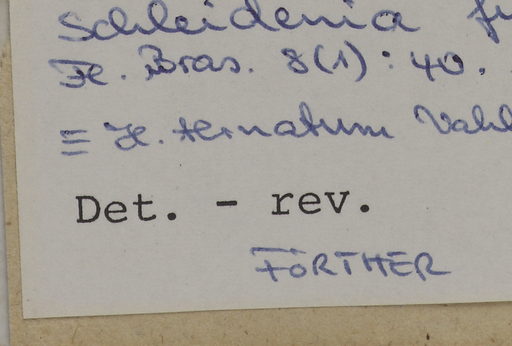 Schleidenia
Fl. Bras. 8(1): 40.
≡ H. ternatum Vahl
Det. - rev.
FÖRTHER